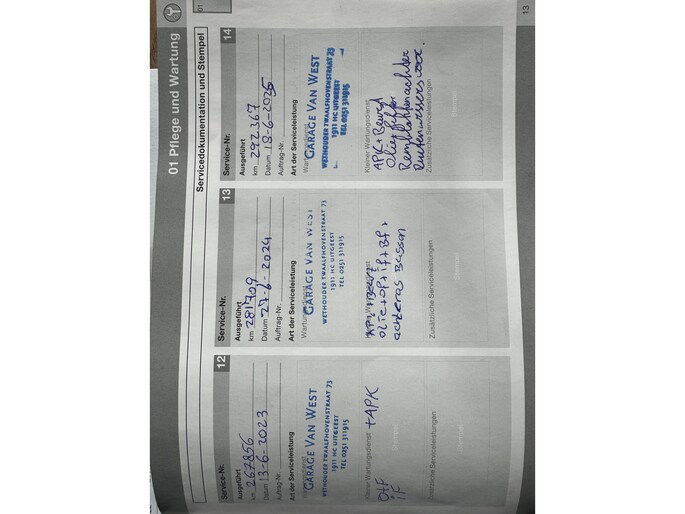 01 Pflege und Wartung
01
Servicedokumentation und Stempel
Service-Nr. 12
Ausgeführt
km 267856
Datum 13-6-2023
Auftrag-Nr.
Art der Serviceleistung
GARAGE VAN WEST
WETHOUDER TWAALFHOVENSTRAAT 73
1911 HC UITGEEST
TEL 0251 311915
Kleiner Wartungsdienst + APK
O+F
iF
Zusätzliche Serviceleistungen
Service-Nr. 13
Ausgeführt
km 281709
Datum 27-6-2024
Auftrag-Nr.
Art der Serviceleistung
GARAGE VAN WEST
WETHOUDER TWAALFHOVENSTRAAT 73
1911 HC UITGEEST
TEL 0251 311915
olie+of+if+Bf+
achteras Bussen
Zusätzliche Serviceleistungen
Service-Nr. 14
Ausgeführt
km 292367
Datum 18-6-2025
Auftrag-Nr.
Art der Serviceleistung
Wartungsdienst
GARAGE VAN WEST
WETHOUDER TWAALFHOVENSTRAAT 73
1911 HC UITGEEST
TEL 0251 311915
Kleiner Wartungsdienst
APK + Beurt
Olie
Remblokken achter
Ruitenwissers voor.
Zusätzliche Serviceleistungen
13